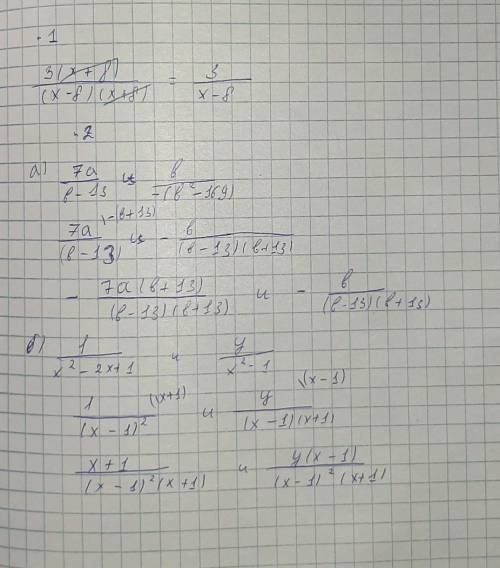 ·1
3(x+8)/((x-8)(x+8)) = 3/(x-8)
·2
а) 7a/(в-13) и в/(-(в²-169))
7a/(в-13) \-(в+13) и - в/((в-13)(в+13))
- 7a(в+13)/((в-13)(в+13)) и - в/((в-13)(в+13))
б) 1/(x²-2x+1) и y/(x²-1)
1/(x-1)² \(x+1) и y/((x-1)(x+1)) \(x-1)
(x+1)/((x-1)²(x+1)) и y(x-1)/((x-1)²(x+1))